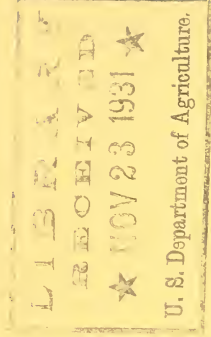 LIBRARY
RECEIVED
★ NOV 23 1931 ★
U. S. Department of Agriculture.